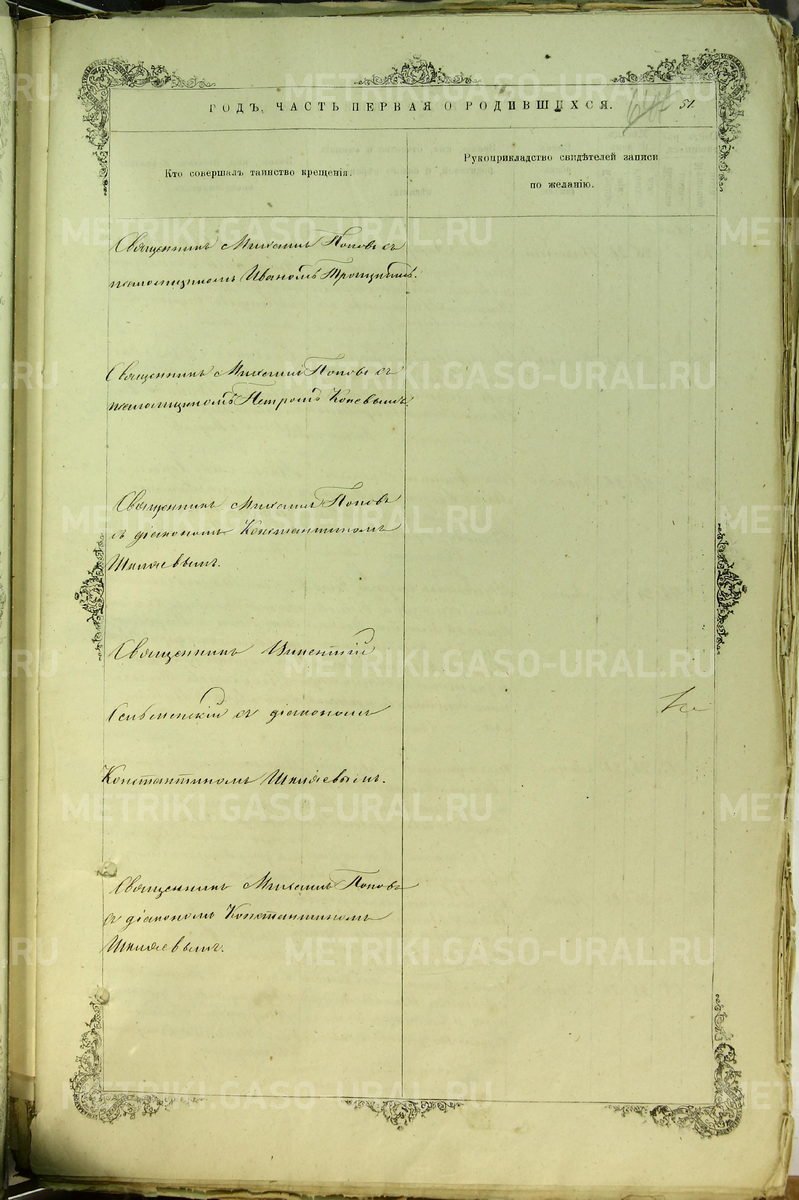 ГОДЪ, ЧАСТЬ ПЕРВАЯ О РОДИВШИХСЯ. 51.
Кто совершалъ таинство крещенія.
Рукоприкладство свидѣтелей записи
по желанію.
Священникъ Михаилъ Поповъ съ
псаломщикомъ Иваномъ Троицкимъ.
Священникъ Михаилъ Поповъ съ
псаломщикомъ Петромъ
Священникъ Михаилъ Поповъ
съ діакономъ Константиномъ
Шиляевымъ.
Священникъ Викентій
Сельменскій съ діакономъ
Константиномъ Шиляевымъ.
Священникъ Михаилъ Поповъ
съ діакономъ Константиномъ
Шиляевымъ.
METRIKI.GASO-URAL.RU